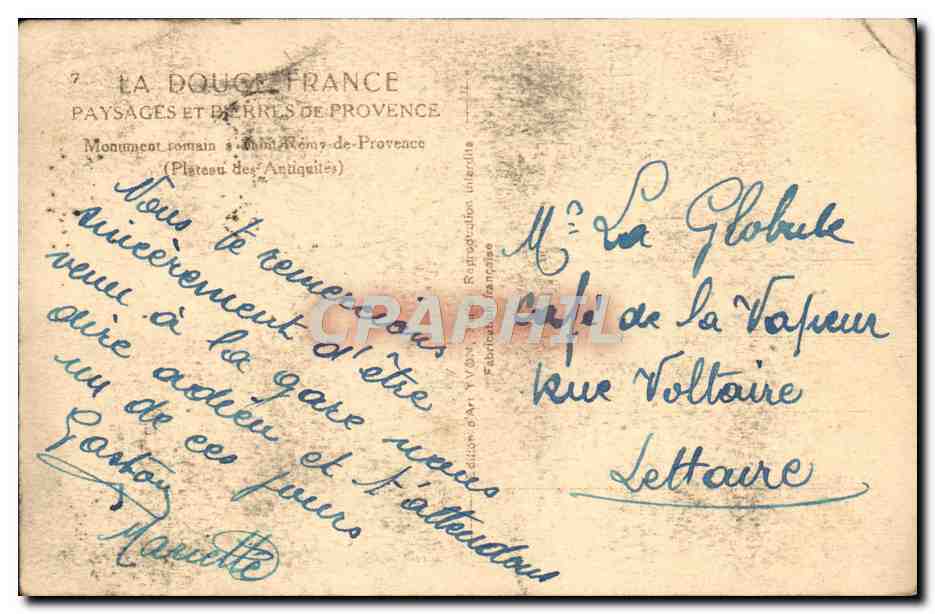 7 LA DOUCE FRANCE
PAYSAGES ET PIERRES DE PROVENCE
Monument romain à Saint-Rémy-de-Provence
(Plateau des Antiquités)
Nous te remercions
sincèrement d'être
venu à la gare nous
dire adieu et t'attendons
un de ces jours
Gaston
Mariette
Edition d'Art YVON Reproduction interdite
Fabrication française
Mr La Globule
Café de la Vapeur
Rue Voltaire
CPARAPHIL